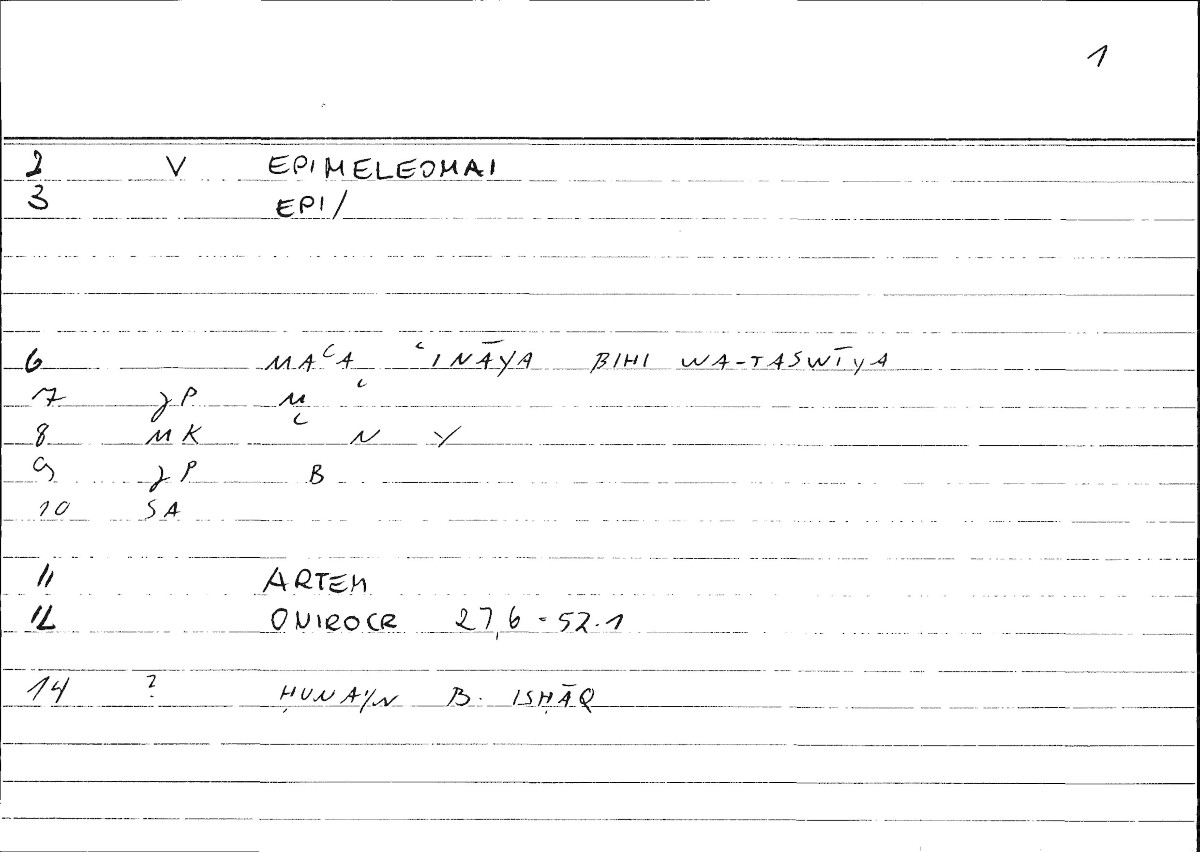 1
2 V EPIMELEOMAI
3 EPI/
6 MAʿA ʿINĀYA BIHI WA-TASWĪYA
7 P M ʿ
8 MK ʿ N Y
9 P B
10 SA
11 ARTEM
12 ONIROCR 27,6 - 52.1
14 ? ḤUNAYN B. ISḤĀQ